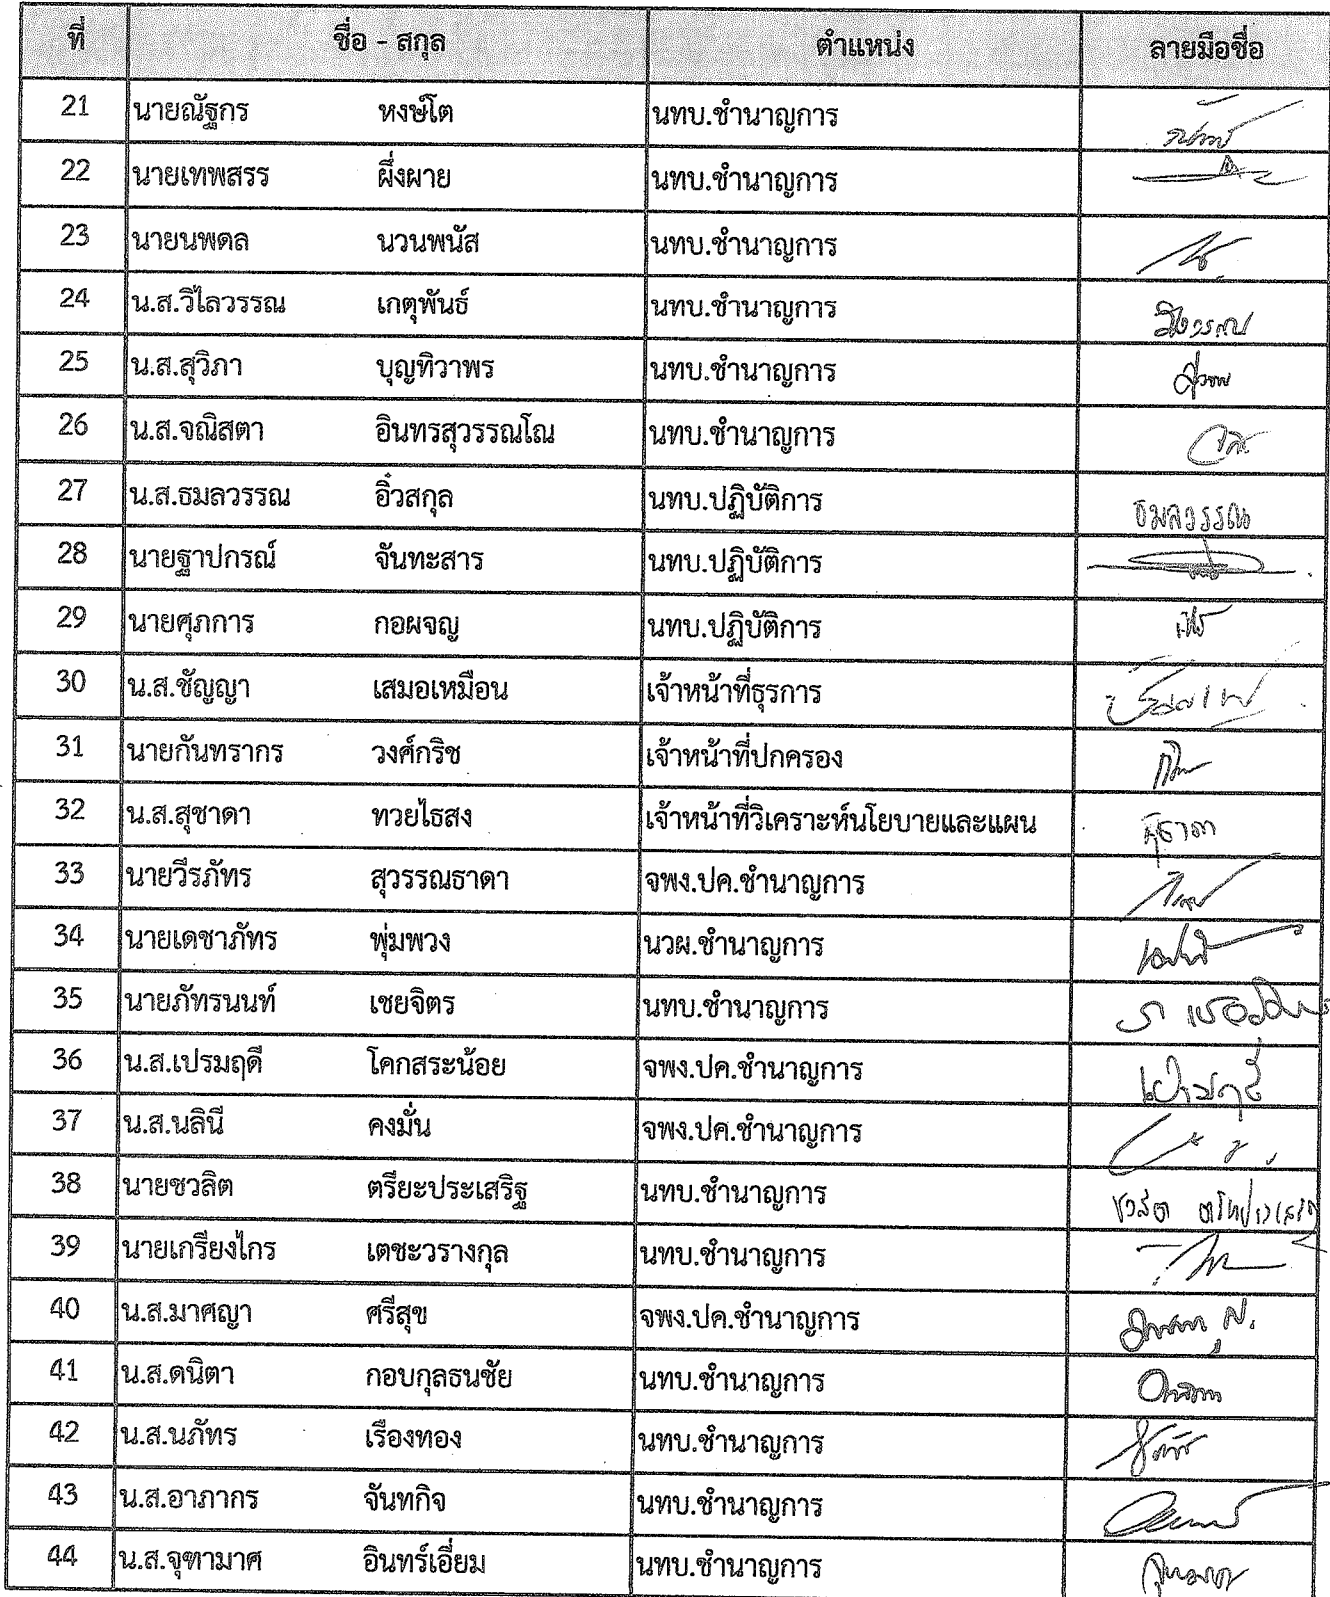 ที่ ชื่อ - สกุล ตำแหน่ง ลายมือชื่อ
21 นายณัฐกร หงษ์โต นทบ.ชำนาญการ
22 นายเทพสรร ผึ่งผาย นทบ.ชำนาญการ
23 นายนพดล นวนพนัส นทบ.ชำนาญการ
24 น.ส.วิไลวรรณ เกตุพันธ์ นทบ.ชำนาญการ วิไลวรรณ
25 น.ส.สุวิภา บุญทิวาพร นทบ.ชำนาญการ
26 น.ส.จณิสตา อินทรสุวรรณโณ นทบ.ชำนาญการ
27 น.ส.ธมลวรรณ อิ๋วสกุล นทบ.ปฏิบัติการ ธมลวรรณ
28 นายฐาปกรณ์ จันทะสาร นทบ.ปฏิบัติการ
29 นายศุภการ กอผจญ นทบ.ปฏิบัติการ
30 น.ส.ชัญญา เสมอเหมือน เจ้าหน้าที่ธุรการ
31 นายกันทรากร วงศ์กริช เจ้าหน้าที่ปกครอง
32 น.ส.สุชาดา ทวยไธสง เจ้าหน้าที่วิเคราะห์นโยบายและแผน สุชาดา
33 นายวีรภัทร สุวรรณธาดา จพง.ปค.ชำนาญการ
34 นายเดชาภัทร พุ่มพวง นวผ.ชำนาญการ
35 นายภัทรนนท์ เชยจิตร นทบ.ชำนาญการ
36 น.ส.เปรมฤดี โคกสระน้อย จพง.ปค.ชำนาญการ เปรมฤดี
37 น.ส.นลินี คงมั่น จพง.ปค.ชำนาญการ
38 นายชวลิต ตรียะประเสริฐ นทบ.ชำนาญการ ชวลิต ตรียะประเสริฐ
39 นายเกรียงไกร เตชะวรางกุล นทบ.ชำนาญการ
40 น.ส.มาศญา ศรีสุข จพง.ปค.ชำนาญการ
41 น.ส.ดนิตา กอบกุลธนชัย นทบ.ชำนาญการ
42 น.ส.นภัทร เรืองทอง นทบ.ชำนาญการ
43 น.ส.อาภากร จันทกิจ นทบ.ชำนาญการ
44 น.ส.จุฑามาศ อินทร์เอี่ยม นทบ.ชำนาญการ